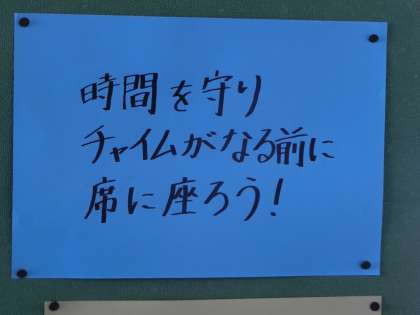 時間を守り
チャイムがなる前に
席に座ろう!